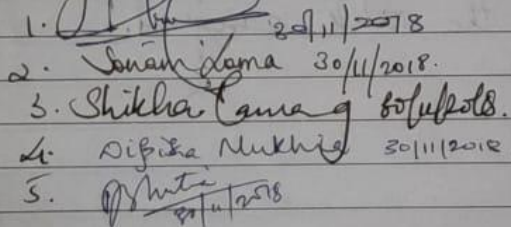 1. 30/11/2018
2. Sonam Lama 30/11/2018.
3. Shikha Tamang 30/11/2018.
4. Dipika Mukhia 30/11/2018
5. 30/11/2018